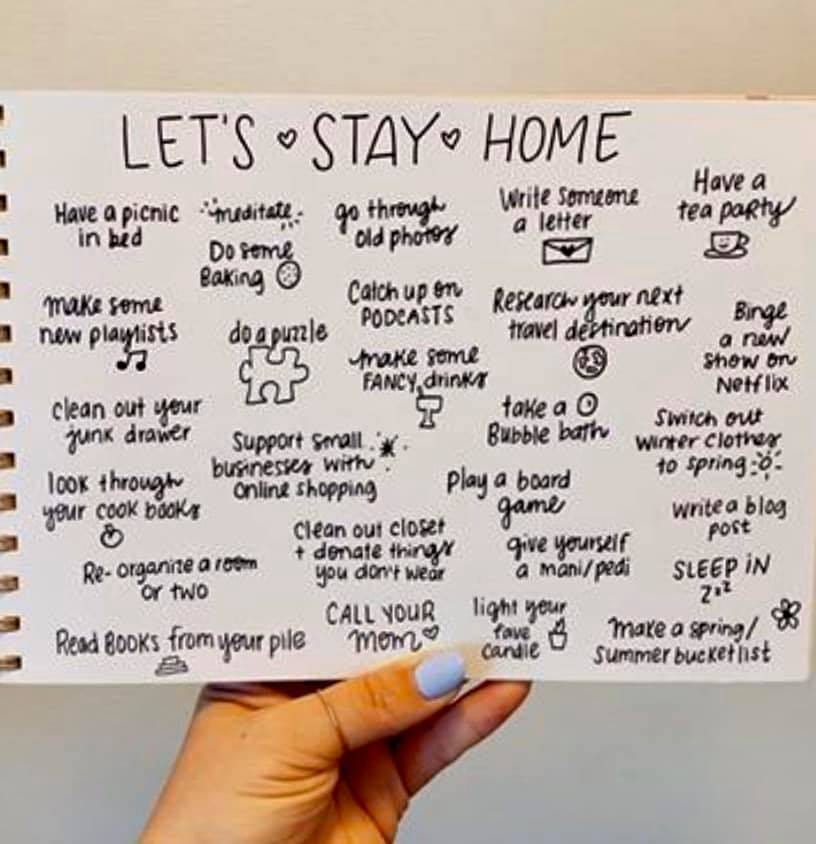 LET'S STAY HOME
Have a picnic
in bed
meditate
go through
old photos
Write someone
a letter
Have a
tea party
Do some
Baking
make some
new playlists
do a puzzle
Catch up on
PODCASTS
Research your next
travel destination
Binge
a new
show on
Netflix
make some
FANCY drinks
clean out your
junk drawer
Support small
businesses with
online shopping
take a
Bubble bath
Switch out
winter clothes
to spring
look through
your cook books
Play a board
game
write a blog
post
Clean out closet
+ donate things
you don't wear
give yourself
a mani/pedi
Re-organize a room
or two
SLEEP iN
zzz
Read BOOKS from your pile
CALL YOUR
mom
light your
fave
candle
Make a spring/
summer bucket list